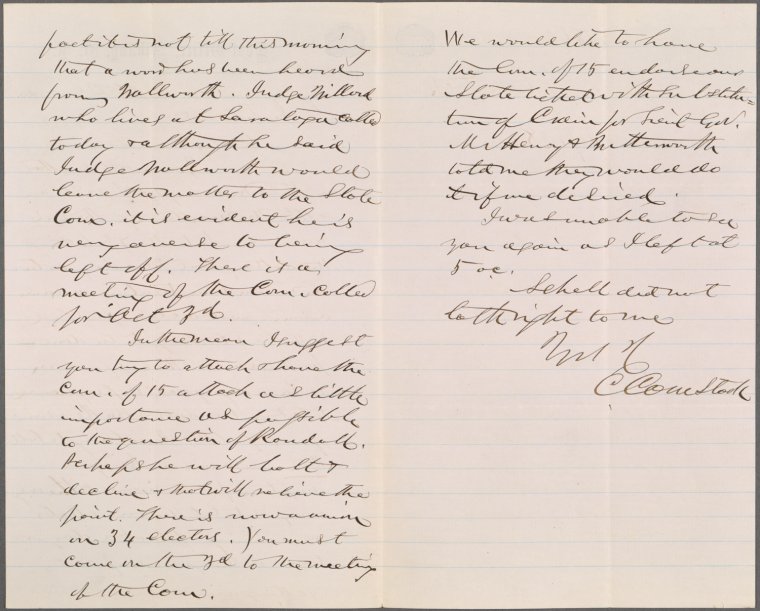 fact it is not till this morning
that a word has been heard
from Wallworth. Judge Willard
who lives at Saratoga called
today & although he said
Judge Wallworth would
leave the matter to the State
Com. it is evident he is
very averse to being
left off. There is a
meeting of the Com. called
for Oct 3d.
In the mean I suggest
you try to attach & have the
Com. of 15 attach as little
importance as possible
to the question of Randall.
Perhaps he will bolt &
decline & that will relieve the
point. There is now a union
on 34 electors. You must
come on the 3d to the meeting
of the Com.
We would like to have
the Com. of 15 endorse our
State ticket with substitu-
tion of Crain for Lieut Gov.
McHenry & Butterworth
told me they would do
it if we desired.
I was unable to see
you again as I left at
5 oc.
Schell did not
talk right to me
C Comstock